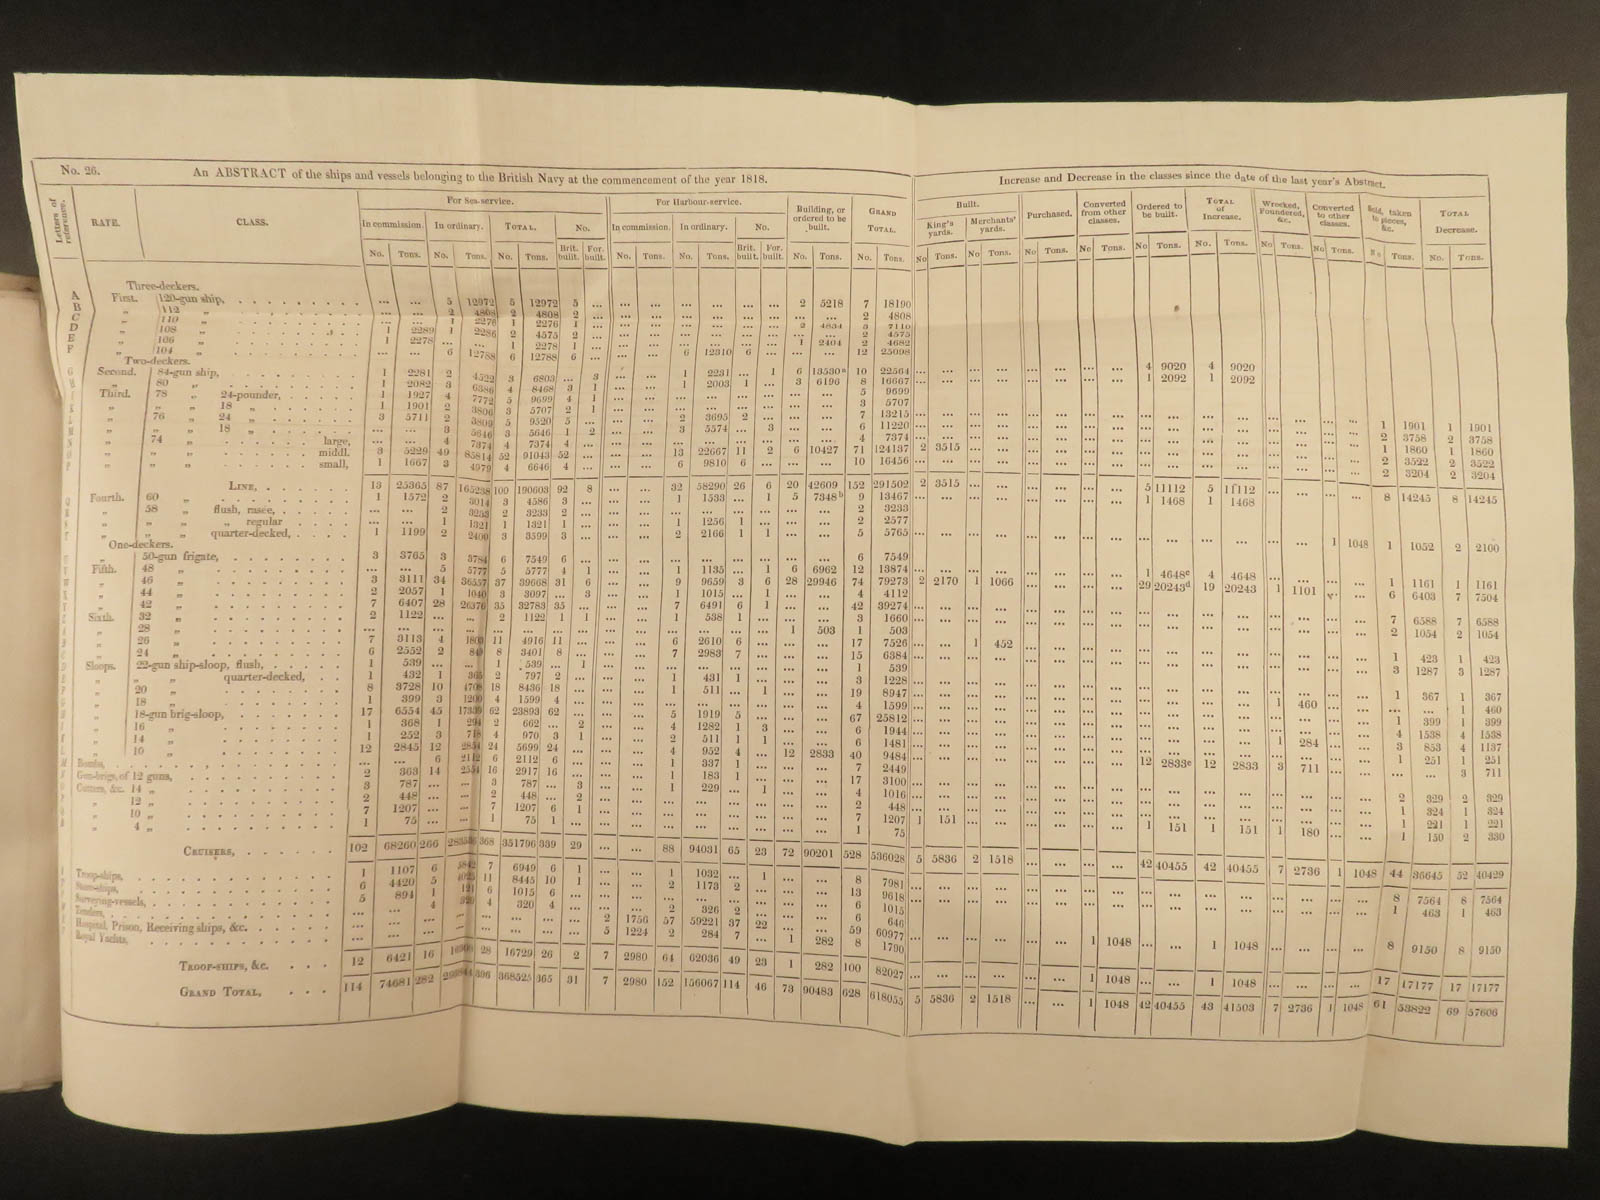 No. 26. An ABSTRACT of the ships and vessels belonging to the British Navy at the commencement of the year 1818.
Increase and Decrease in the classes since the date of the last year's Abstract.
Letters of reference.
RATE.
CLASS.
For Sea-service.
In commission. In ordinary. TOTAL. No.
No. Tons. No. Tons. No. Tons. Brit. built. For. built.
For Harbour-service.
In commission. In ordinary. No.
No. Tons. No. Tons. Brit. built. For. built.
Building, or ordered to be built.
No. Tons.
GRAND TOTAL.
No. Tons.
Built.
King's yards. Merchants' yards.
No Tons. No Tons.
Purchased.
No Tons.
Converted from other classes.
No Tons.
Ordered to be built.
No Tons.
TOTAL of Increase.
No. Tons.
Wrecked, Foundered, &c.
No Tons.
Converted to other classes.
No Tons.
Sold, taken to pieces, &c.
No Tons.
TOTAL Decrease.
No. Tons.
Three-deckers.
A First. 120-gun ship, ... ... 5 12972 5 12972 5 ... ... ... ... ... ... ... 2 5218 7 18190
B „ 112 „ ... ... 2 4808 2 4808 2 ... ... ... ... ... ... ... ... ... 2 4808
C „ 110 „ ... ... 1 2276 1 2276 1 ... 2 4834 3 7110
D „ 108 „ 1 2289 1 2286 2 4575 2 ... 2 4575
E „ 106 „ 1 2278 ... ... 1 2278 1 ... 1 2404 2 4682
F „ 104 „ ... ... 6 12788 6 12788 6 ... ... ... 6 12310 6 ... ... ... 12 25098
Two-deckers.
Second. 84-gun ship, 1 2281 2 4522 3 6803 ... 3 ... ... 1 2231 ... 1 6 13530a 10 22564 4 9020 4 9020
„ 80 „ 1 2082 3 6386 4 8468 3 1 ... ... 1 2003 1 ... 3 6196 8 16667 1 2092 1 2092
Third. 78 „ 24-pounder, 1 1927 4 7772 5 9699 4 1 5 9699
„ „ „ 18 „ 1 1901 2 3806 3 5707 2 1 3 5707
„ 76 „ 24 „ 3 5711 2 3809 5 9520 5 ... ... ... 2 3695 2 ... 7 13215 1 1901 1 1901
„ „ „ 18 „ ... ... 3 5646 3 5646 1 2 ... ... 3 5574 ... 3 ... ... 6 11220 2 3758 2 3758
„ 74 „ large, ... ... 4 7374 4 7374 4 ... 4 7374 1 1860 1 1860
„ „ „ middl. 3 5229 49 85814 52 91043 52 ... ... ... 13 22667 11 2 6 10427 71 124137 2 3515 2 3522 2 3522
„ „ „ small, 1 1667 3 4979 4 6646 4 ... ... ... 6 9810 6 ... ... ... 10 16456 2 3204 2 3204
LINE, 13 25365 87 165238 100 190603 92 8 ... ... 32 58290 26 6 20 42609 152 291502 2 3515 5 11112 5 11112 8 14245 8 14245
Fourth. 60 „ 1 1572 2 3014 3 4586 3 ... ... ... 1 1533 ... 1 5 7348b 9 13467 1 1468 1 1468
„ 58 „ flush, rasee, ... ... 2 3233 2 3233 2 ... 2 3233
„ „ „ „ regular ... ... 1 1321 1 1321 1 ... ... ... 1 1256 1 ... 2 2577
„ „ „ quarter-decked, 1 1199 2 2400 3 3599 3 ... ... ... 2 2166 1 1 ... ... 5 5765 1 1048 1 1052 2 2100
One-deckers.
„ 50-gun frigate, 3 3765 3 3784 6 7549 6 ... 6 7549
Fifth. 48 „ ... ... 5 5777 5 5777 4 1 ... ... 1 1135 ... 1 6 6962 12 13874 4 4648c 4 4648 1 1161 1 1161
„ 46 „ 3 3111 34 36557 37 39668 31 6 ... ... 9 9659 3 6 28 29946 74 79273 2 2170 1 1066 20243d 19 20243 1 1101 6 6403 7 7504
„ 44 „ 2 2057 1 1040 3 3097 ... 3 ... ... 1 1015 ... 1 ... ... 4 4112
„ 42 „ 7 6407 28 26376 35 32783 35 ... ... ... 7 6491 6 1 ... ... 42 39274 7 6588 7 6588
Sixth. 32 „ 2 1122 ... ... 2 1122 1 1 ... ... 1 538 1 ... ... ... 3 1660 2 1054 2 1054
„ 28 „ 1 503 1 503
„ 26 „ 7 3113 4 1803 11 4916 11 ... ... ... 6 2610 6 ... ... ... 17 7526 ... ... 1 452 1 423 1 423
„ 24 „ 6 2552 2 849 8 3401 8 ... ... ... 7 2983 7 ... ... ... 15 6384 3 1287 3 1287
Sloops. 22-gun ship-sloop, flush, 1 539 ... ... 1 539 ... 1 1 539
„ „ „ quarter-decked, 1 432 1 365 2 797 2 ... ... ... 1 431 1 ... 3 1228 1 367 1 367
„ 20 „ 8 3728 10 4708 18 8436 18 ... ... ... 1 511 ... 1 ... ... 19 8947 1 460 ... ... 1 460
„ 18 „ 1 399 3 1200 4 1599 4 ... 4 1599 1 399 1 399
„ 18-gun brig-sloop, 17 6554 45 17339 62 23893 62 ... ... ... 5 1919 5 ... 67 25812 4 1538 4 1538
„ 16 „ 1 368 1 294 2 662 ... 2 ... ... 4 1282 1 3 ... ... 6 1944 1 284 3 853 4 1137
„ 14 „ 1 252 3 718 4 970 3 1 ... ... 2 511 1 1 ... ... 6 1481 1 251 1 251
„ 10 „ 12 2845 12 2854 24 5699 24 ... ... ... 4 952 4 ... 12 2833 40 9484 12 2833e 12 2833 3 711 ... ... 3 711
Bombs, ... ... 6 2112 6 2112 6 ... ... ... 1 337 1 ... 7 2449
Gun-brigs, of 12 guns, 2 363 14 2554 16 2917 16 ... ... ... 1 183 1 ... 17 3100 2 329 2 329
Cutters, &c. 14 „ 3 787 ... ... 3 787 ... 3 ... ... 1 229 ... 1 ... ... 4 1016 1 324 1 324
„ 12 „ 2 448 ... ... 2 448 ... 2 2 448 1 221 1 221
„ 10 „ 7 1207 ... ... 7 1207 6 1 7 1207 1 151 1 151 1 151 1 180 1 150 2 330
„ 4 „ 1 75 ... ... 1 75 1 ... 1 75
CRUISERS, 102 68260 266 283536 368 351796 339 29 ... ... 88 94031 65 23 72 90201 528 536028 5 5836 2 1518 ... ... ... ... 42 40455 42 40455 7 2736 1 1048 44 36645 52 40429
Troop-ships, 1 1107 6 5842 7 6949 6 1 ... ... 1 1032 ... 1 ... ... 8 7981 8 7564 8 7564
Store-ships, 6 4420 5 4025 11 8445 10 1 ... ... 2 1173 2 ... 13 9618 1 463 1 463
Surveying-vessels, 5 894 1 121 6 1015 6 ... 6 1015
Tenders, ... ... 4 320 4 320 4 ... ... ... 2 326 2 ... 6 646
Hospital, Prison, Receiving ships, &c. 2 1756 57 59221 37 22 ... ... 59 60977 1 1048 ... ... 1 1048 8 9150 8 9150
Royal Yachts, 5 1224 2 284 7 ... 1 282 8 1790
TROOP-SHIPS, &c. 12 6421 16 28 16729 26 2 7 2980 64 62036 49 23 1 282 100 82027 1 1048 ... ... 1 1048 17 17177 17 17177
GRAND TOTAL, 114 74681 282 293844 396 368525 365 31 7 2980 152 156067 114 46 73 90483 628 618055 5 5836 2 1518 ... ... 1 1048 42 40455 43 41503 7 2736 1 1048 61 53822 69 57606